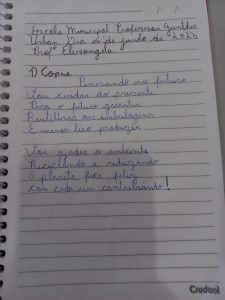 Escola Municipal Professor Gunther
Urban, 2 de junho de 2023
Profª Elizangela.
1) Copie
Pensando no futuro
Vou cuidar do presente
Para o futuro garantir
Reutilizar as embalagens
E menos lixo produzir
Vou ajudar o ambiente
Reciclando e reduzindo
O planeta fica feliz
com cada um contribuindo!
Credeal